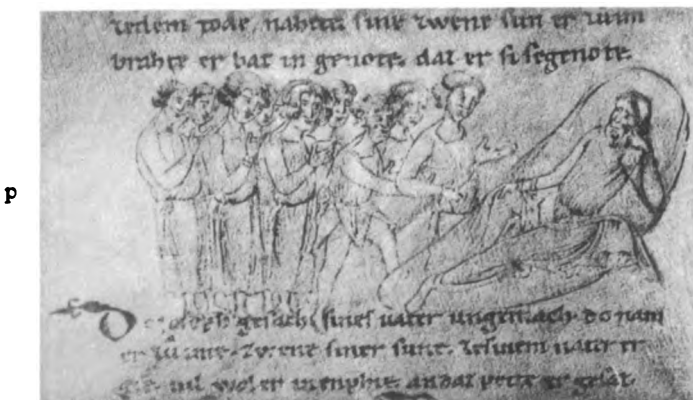 p
zedem tode. sine zwene sun er zuim
brahte er bat in genote. daz er si segenote.
Do gesach sines uater ungemach. do nam
er zu ime. zwene siner sune. zesinem uater er
gie. uil wol er in enphie. an daz pette er gesaz.